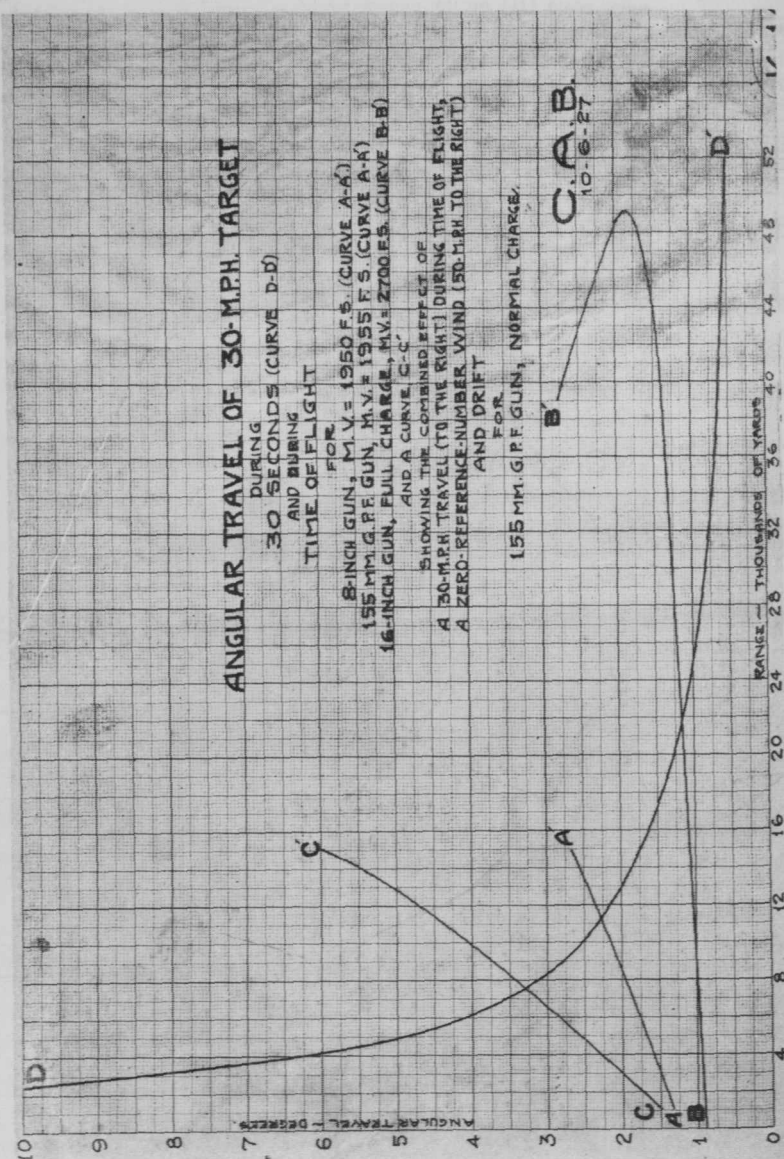 ANGULAR TRAVEL OF 30-M.P.H. TARGET
DURING
30 SECONDS (CURVE D-D')
AND DURING
TIME OF FLIGHT
FOR
8-INCH GUN, M.V. = 1950 F.S. (CURVE A-A')
155 MM. G.P.F. GUN, M.V. = 1955 F.S. (CURVE A-A')
16-INCH GUN, FULL CHARGE, M.V. = 2700 F.S. (CURVE B-B')
AND A CURVE C-C'
SHOWING THE COMBINED EFFECT OF:
A 30-M.P.H. TRAVEL (TO THE RIGHT) DURING TIME OF FLIGHT,
A ZERO-REFERENCE-NUMBER WIND (50-M.P.H. TO THE RIGHT)
AND DRIFT
FOR
155 MM. G.P.F. GUN, NORMAL CHARGE.
C.A.B.
10-6-27
D
C'
A'
B'
D'
C
A
B
ANGULAR TRAVEL - DEGREES.
10
9
8
6
5
4
3
2
1
0
4
8
12
16
20
24
28
32
36
40
44
48
52
RANGE - THOUSANDS OF YARDS